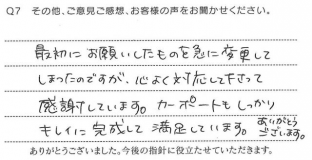 Q7 その他、ご意見ご感想、お客様の声をお聞かせください。
最初にお願いしたものを急に変更して
しまったのですが、心よく対応して下さって
感謝しています。カーポートもしっかり
キレイに完成して満足しています。ありがとうございます。
ありがとうございました。今後の指針に役立たせていただきます。